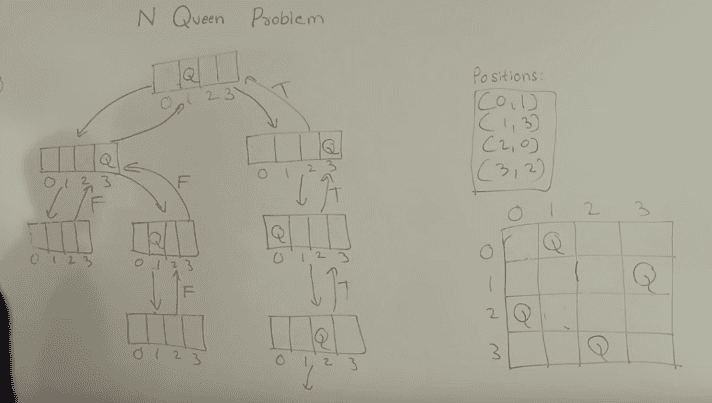 N Queen Problem
Q
0 1 2 3
T
Q
0 1 2 3
F
F
0 1 2 3
Q
0 1 2 3
F
0 1 2 3
Q
0 1 2 3
T
Q
0 1 2 3
T
Q
0 1 2 3
Positions:
(0,1)
(1,3)
(2,0)
(3,2)
0 1 2 3
0 Q
1 Q
2 Q
3 Q